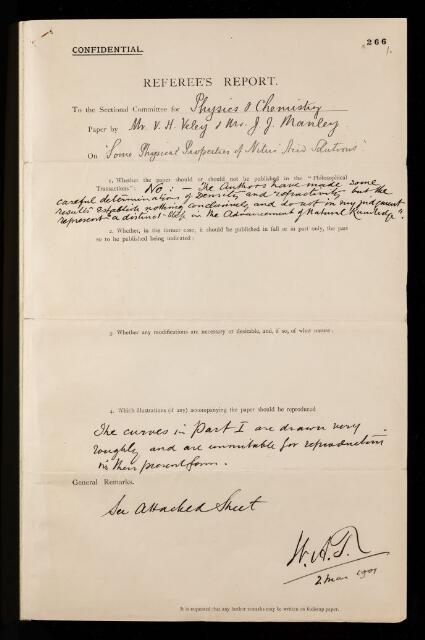 CONFIDENTIAL.
266
REFEREE'S REPORT.
To the Sectional Committee for Physics & Chemistry
Paper by Mr. V. H. Veley & Mr. J. J. Manley
On "Some Physical Properties of Nitric Acid Solutions"
1. Whether the paper should or should not be published in the "Philosophical
Transactions": No: — The Authors have made some
careful determinations of density and refractivity but the
results establish nothing conclusively and do not in my judgement
represent "a distinct step in the Advancement of Natural Knowledge".
2. Whether, in the former case, it should be published in full or in part only, the part
so to be published being indicated:
3. Whether any modifications are necessary or desirable, and, if so, of what nature:
4. Which illustrations (if any) accompanying the paper should be reproduced
The curves in Part I are drawn very
roughly and are unsuitable for reproduction
in their present form.
General Remarks.
See Attached Sheet
W. A. T.
2 Mar 1901
It is requested that any further remarks may be written on foolscap paper.